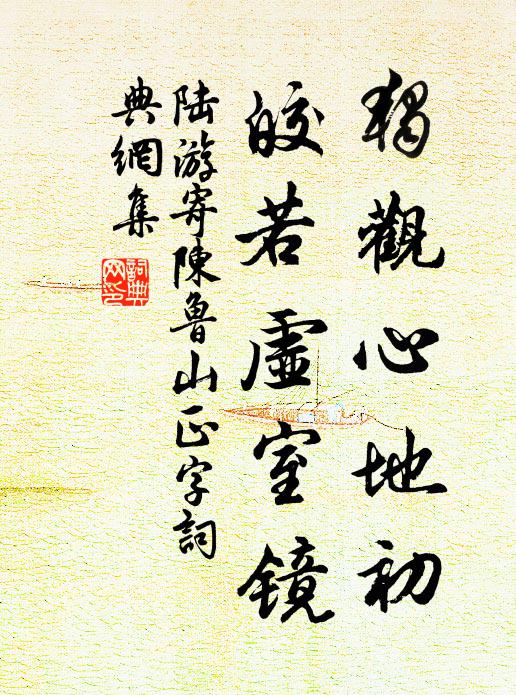 獨觀心地初
皎若虛室鏡
陸游寄陳魯山正字詞
典網集
詞典
网印